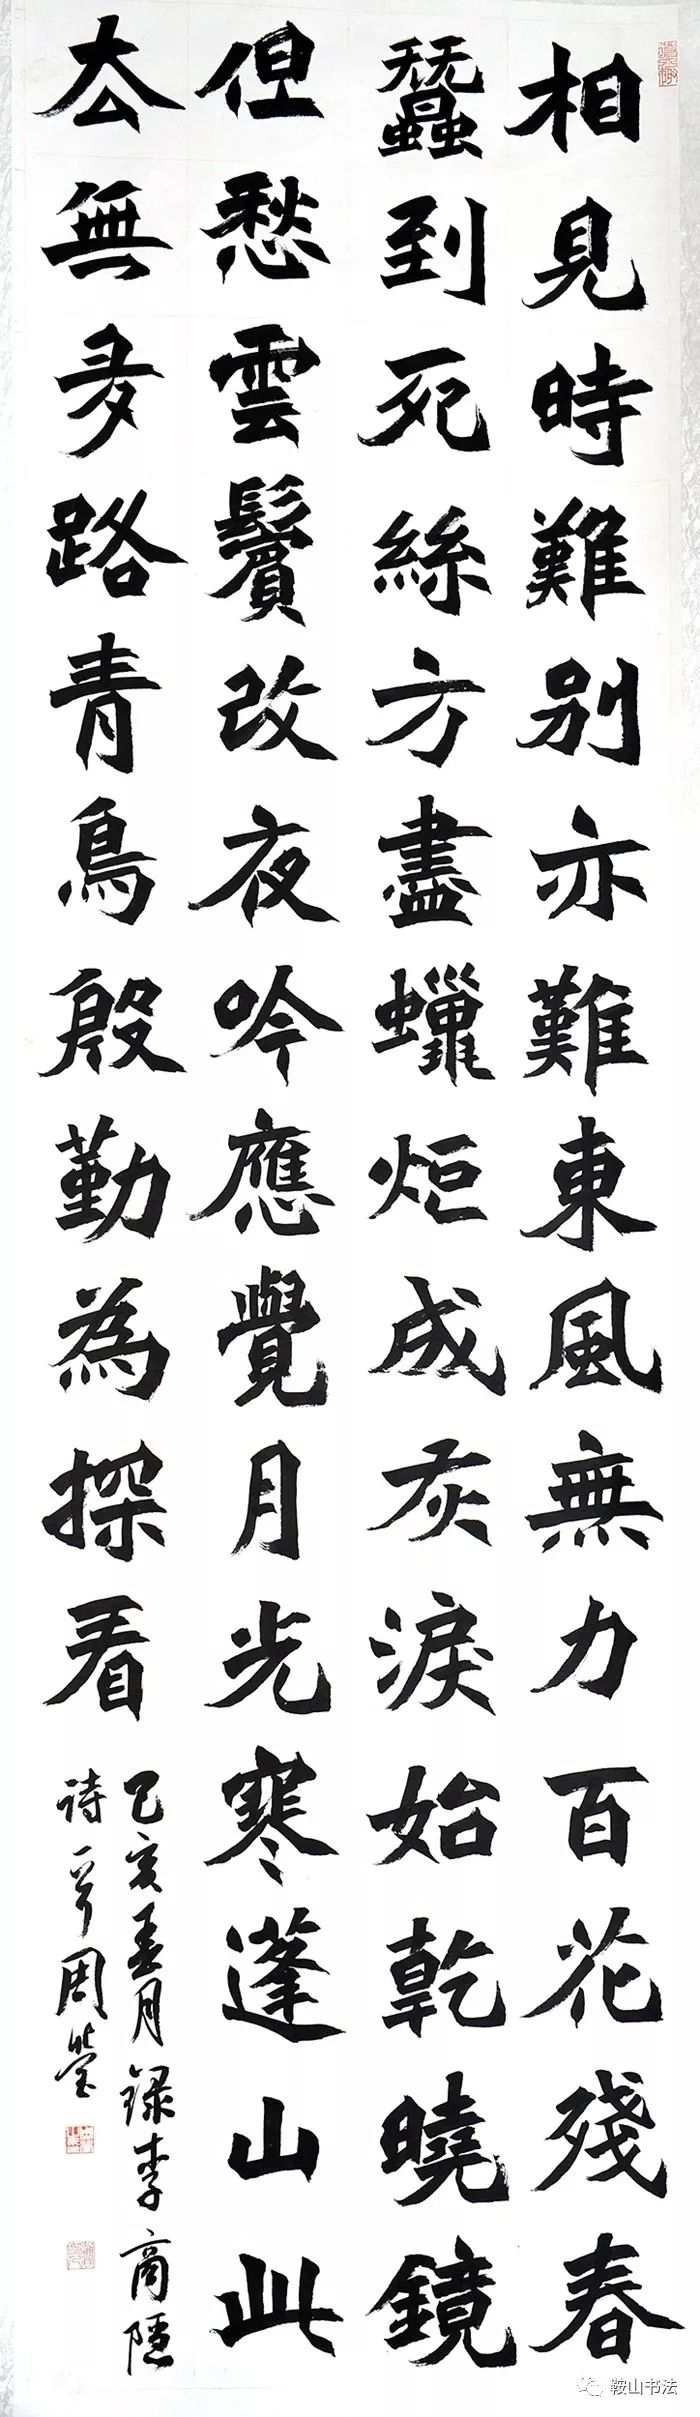 相見時難別亦難東風無力百花殘春
蠶到死絲方盡蠟炬成灰淚始乾曉鏡
但愁雲鬢改夜吟應覺月光寒蓬山此
去無多路青鳥殷勤為探看
己亥春月錄李商隱
诗一首周莹
鞍山书法